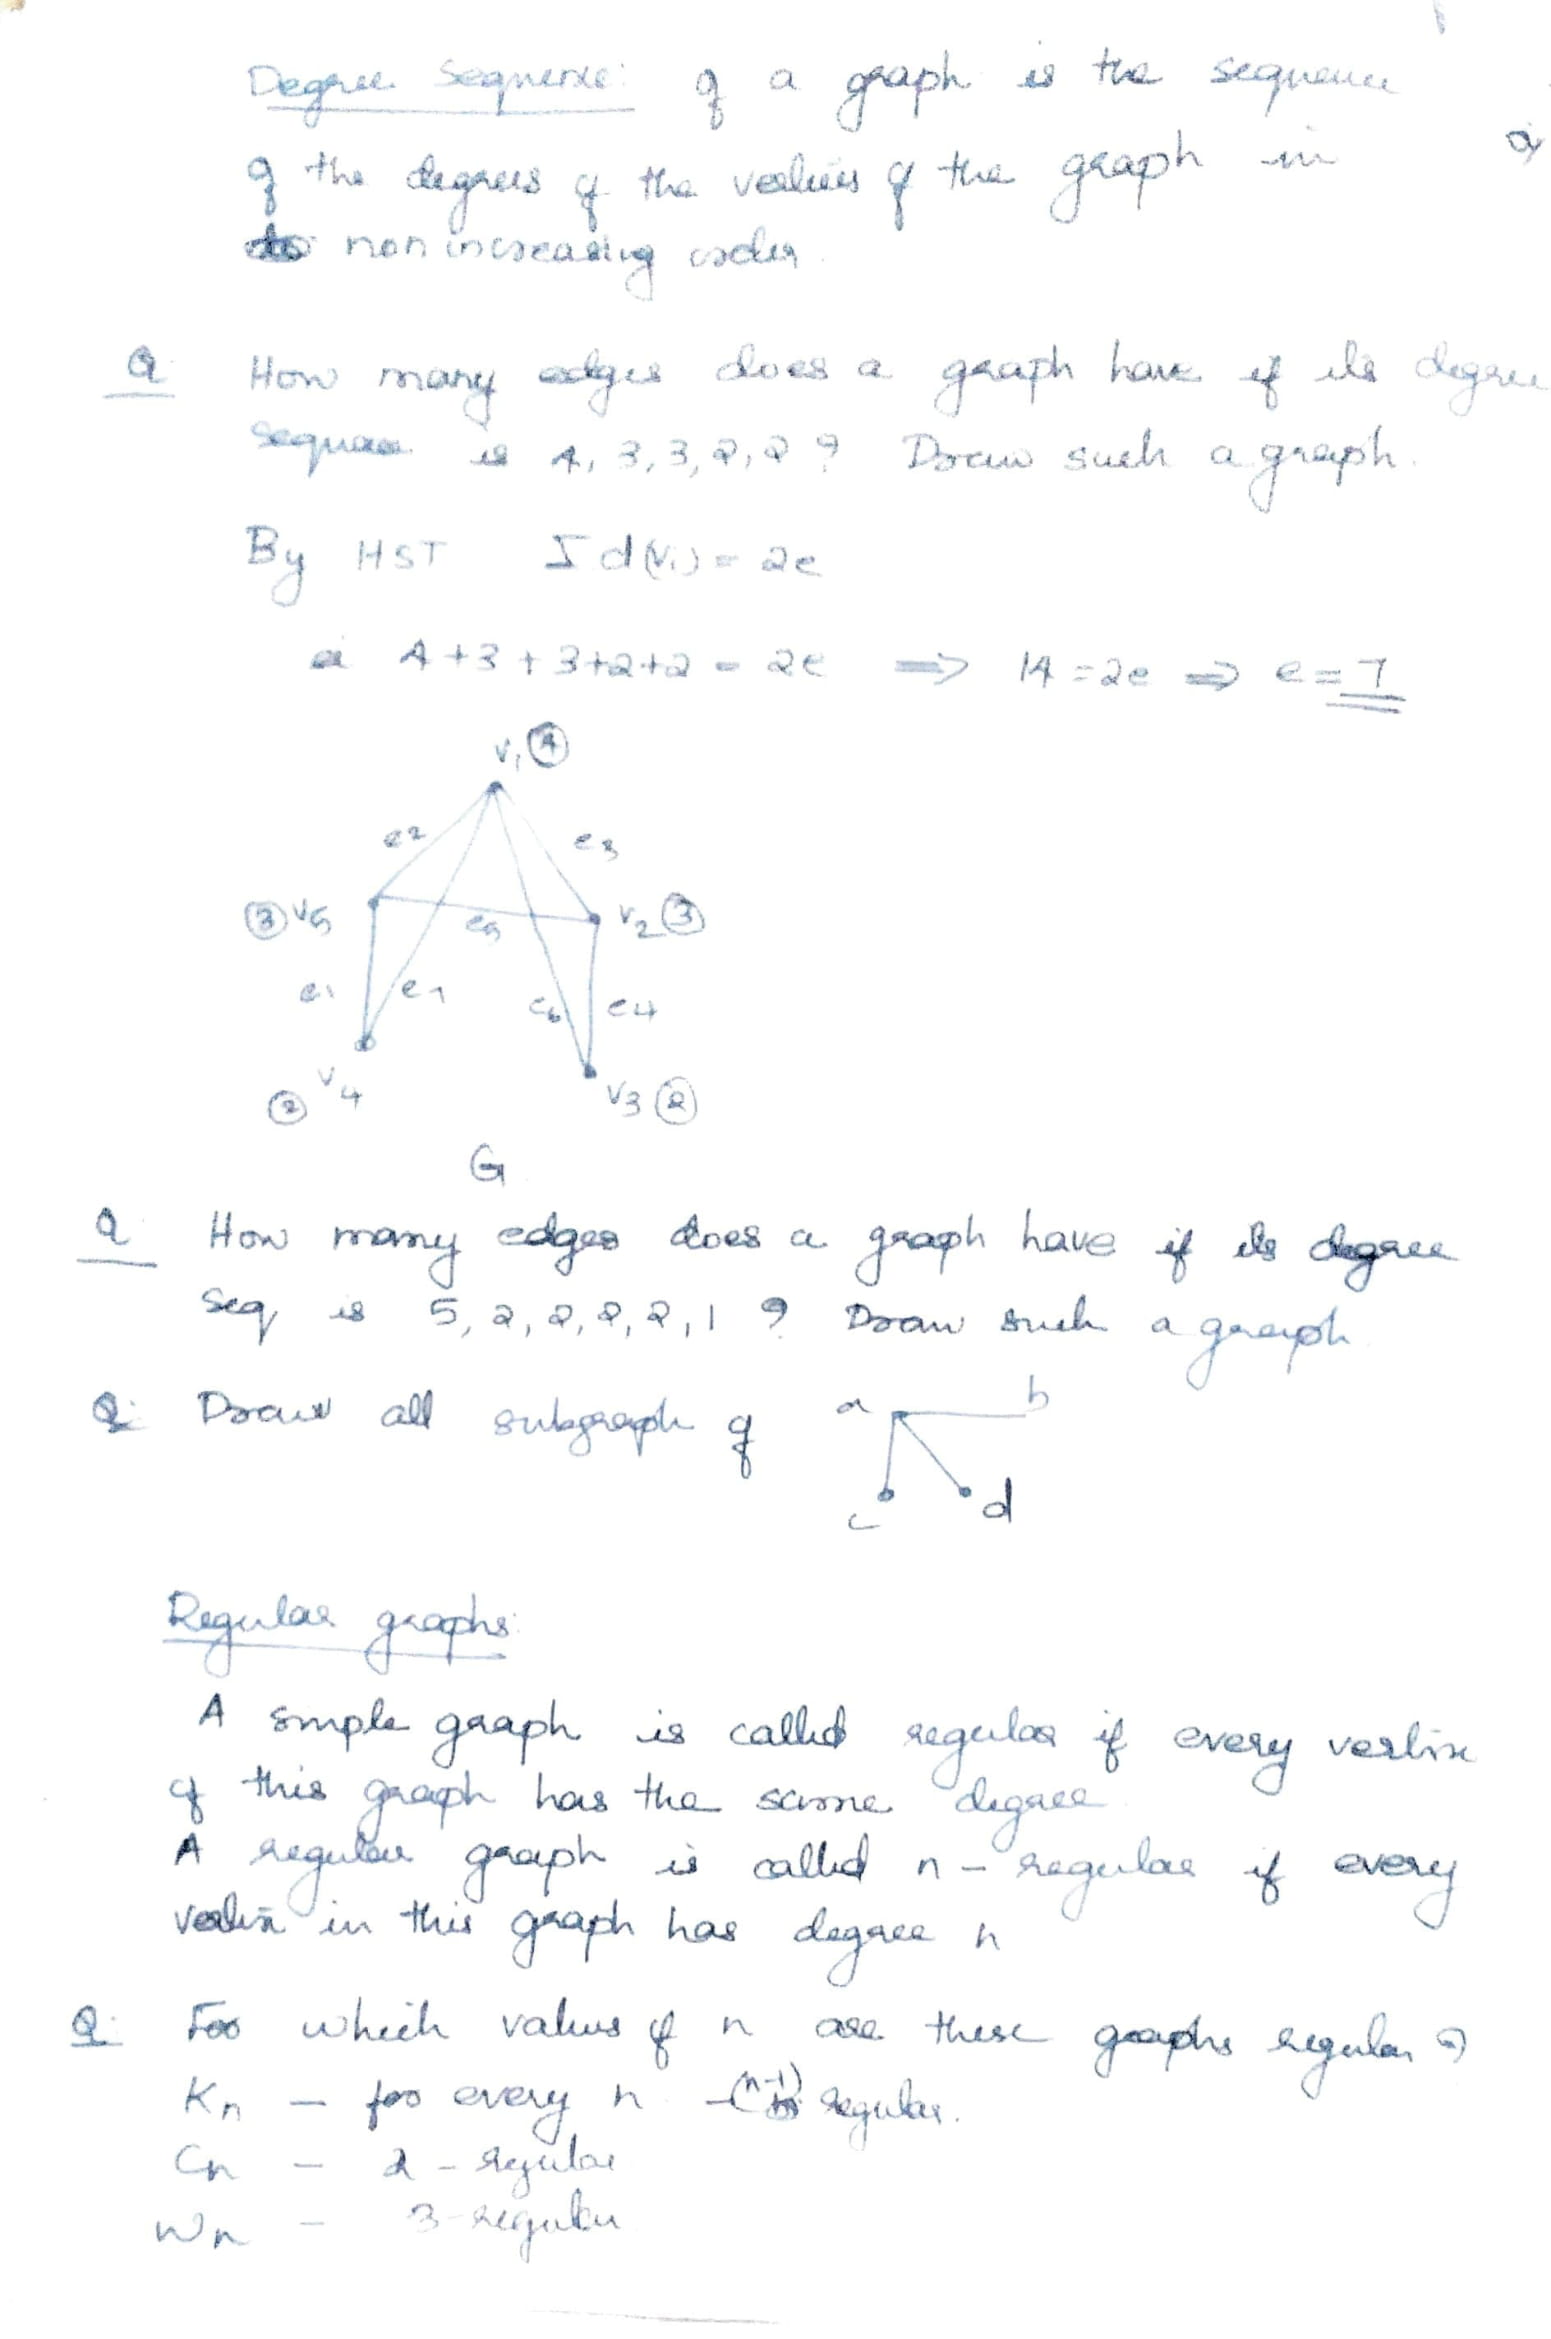 Degree Sequence: of a graph is the sequence
of the degrees of the vertices of the graph in
non increasing order.
Q. How many edges does a graph have if its degree
sequence is 4, 3, 3, 2, 2 ? Draw such a graph.
By HST Σ d(Vi) = 2e
ie 4+3+3+2+2 = 2e ⇒ 14 = 2e ⇒ e = 7
V1 (4)
e2 e3
(3) V5 e5 V2 (3)
e1 e7 e6 e4
(2) V4 V3 (2)
G
Q. How many edges does a graph have if its degree
seq is 5, 2, 2, 2, 2, 1 ? Draw such a graph
Q. Draw all subgraph of a b
c d
Regular graphs:
A simple graph is called regular if every vertex
of this graph has the same degree.
A regular graph is called n-regular if every
vertex in this graph has degree n
Q. For which values of n are these graphs regular ?
Kn – for every n – (n-1) regular.
Cn – 2-regular
Wn – 3-regular